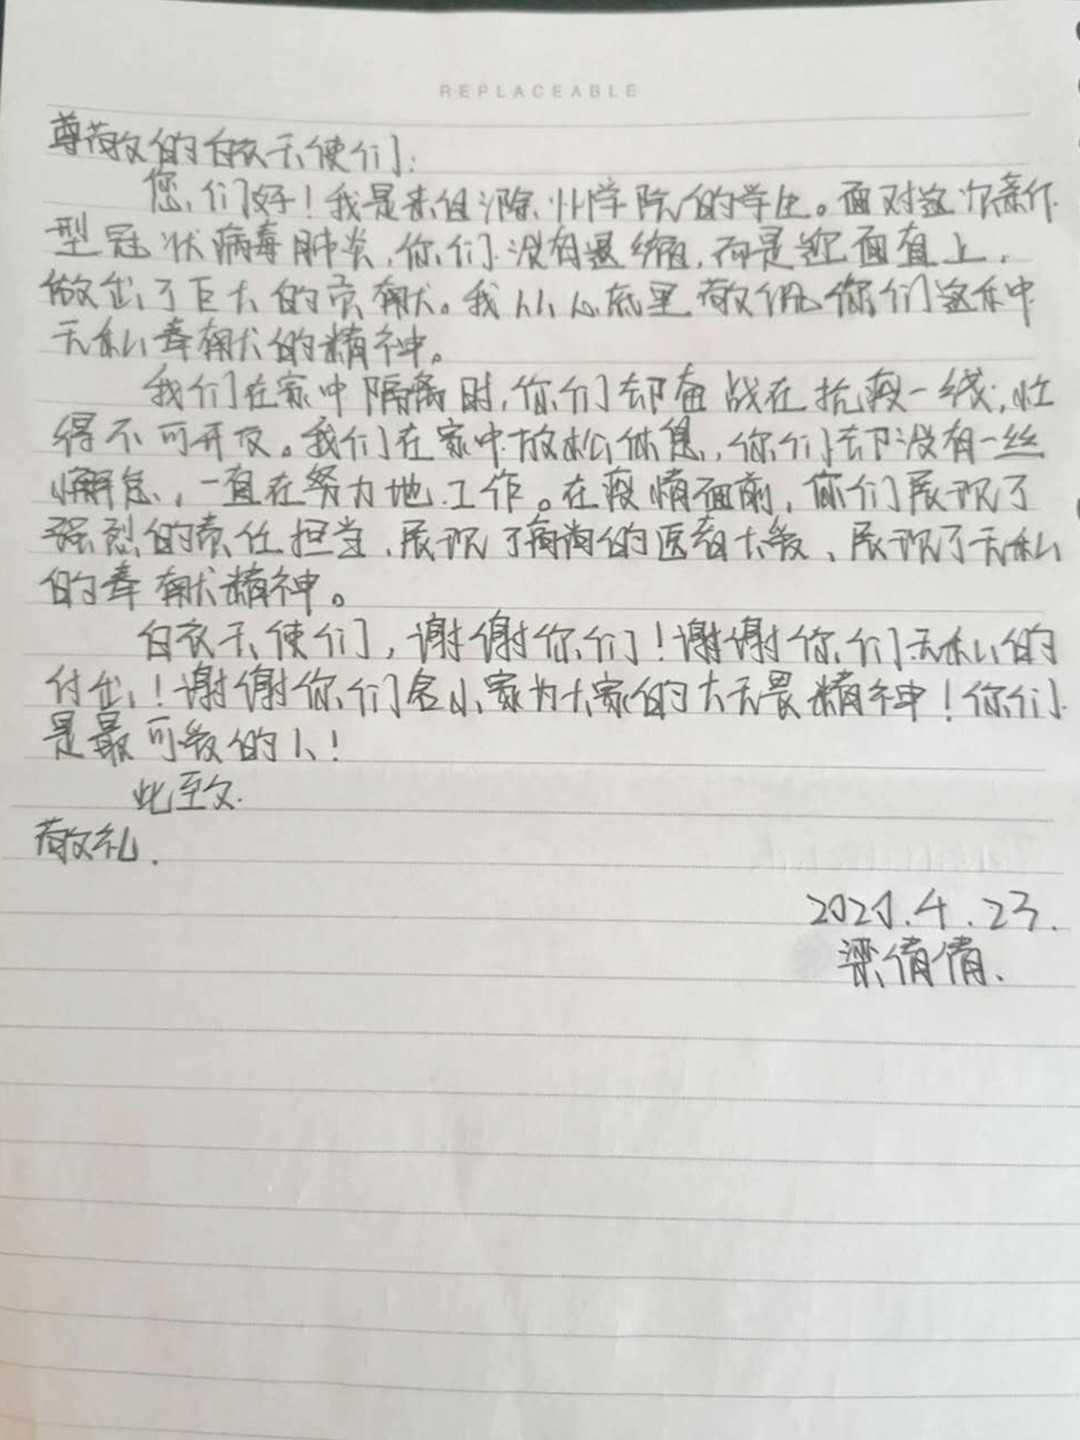 REPLACEABLE
尊敬的白衣天使们：
您们好！我是来自滁州学院的学生。面对这次新
型冠状病毒肺炎，你们没有退缩，而是迎面直上，
做出了巨大的贡献。我从心底里敬佩你们这种
无私奉献的精神。
我们在家中隔离时，你们却奋战在抗疫一线，忙
得不可开交。我们在家中放松休息，你们却没有一丝
懈怠，一直在努力地工作。在疫情面前，你们展现了
强烈的责任担当、展现了高尚的医者大爱、展现了无私
的奉献精神。
白衣天使们，谢谢你们！谢谢你们无私的
付出！谢谢你们舍小家为大家的大无畏精神！你们
是最可爱的人！
此至文
敬礼.
2020.4.23.
梁倩倩.